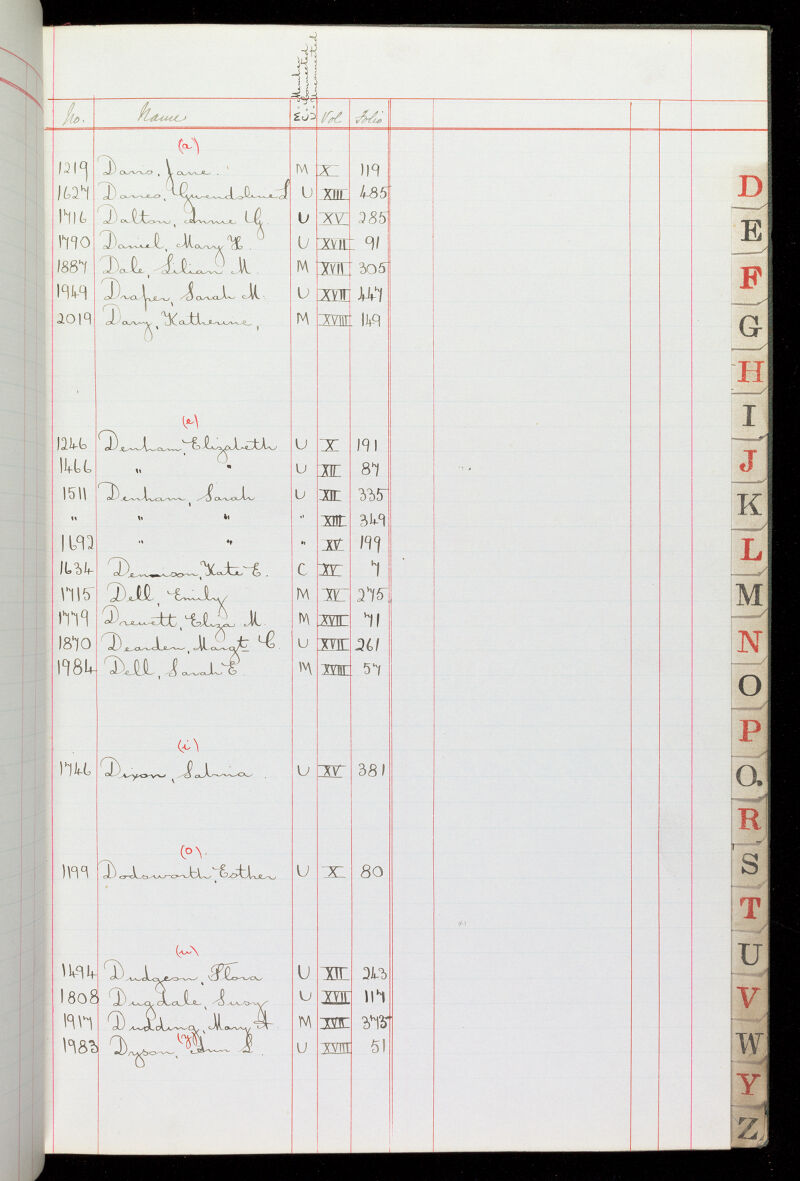 M. Member
C. Connected
U. Unconnected
No. Name M C U Vol Folio
(a)
1219 Davis, Jane. M X 119
1627 Davies, Gwendoline L U XIII 485
1716 Dalton, Annie G. U XV 285
1790 Daniel, Mary H. U XVII 91
1887 Dale, Lilian M. M XVII 305
1949 Draper, Sarah M. U XVII 447
2019 Davy, Katherine, M XVIII 149
(e)
1246 Denham, Elizabeth U X 191
1466 " " U XII 87
1511 Denham, Sarah U XII 335
" " " " XIII 349
1692 " " " XV 199
1634 Dennison, Kate E. C XV 7
1715 Dell, Emily M XV 275
1779 Drewett, Eliza M. M XVII 71
1870 Dearden, Margt C. U XVII 261
1984 Dell, Sarah E M XVIII 57
(i)
1746 Dixon, Sabina. U XV 381
(o).
1199 Dodsworth, Esther U X 80
(u)
1494 Dudgeon, Flora U XII 243
1808 Dugdale, Susy U XVII 117
1917 Dudding, Mary A M XVII 373
(y)
1983 Dyson, Ann L. U XVIII 51
D
E
F
G
H
I
J
K
L
M
N
O
P
Q.
R
S
T
U
V
W
Y
Z